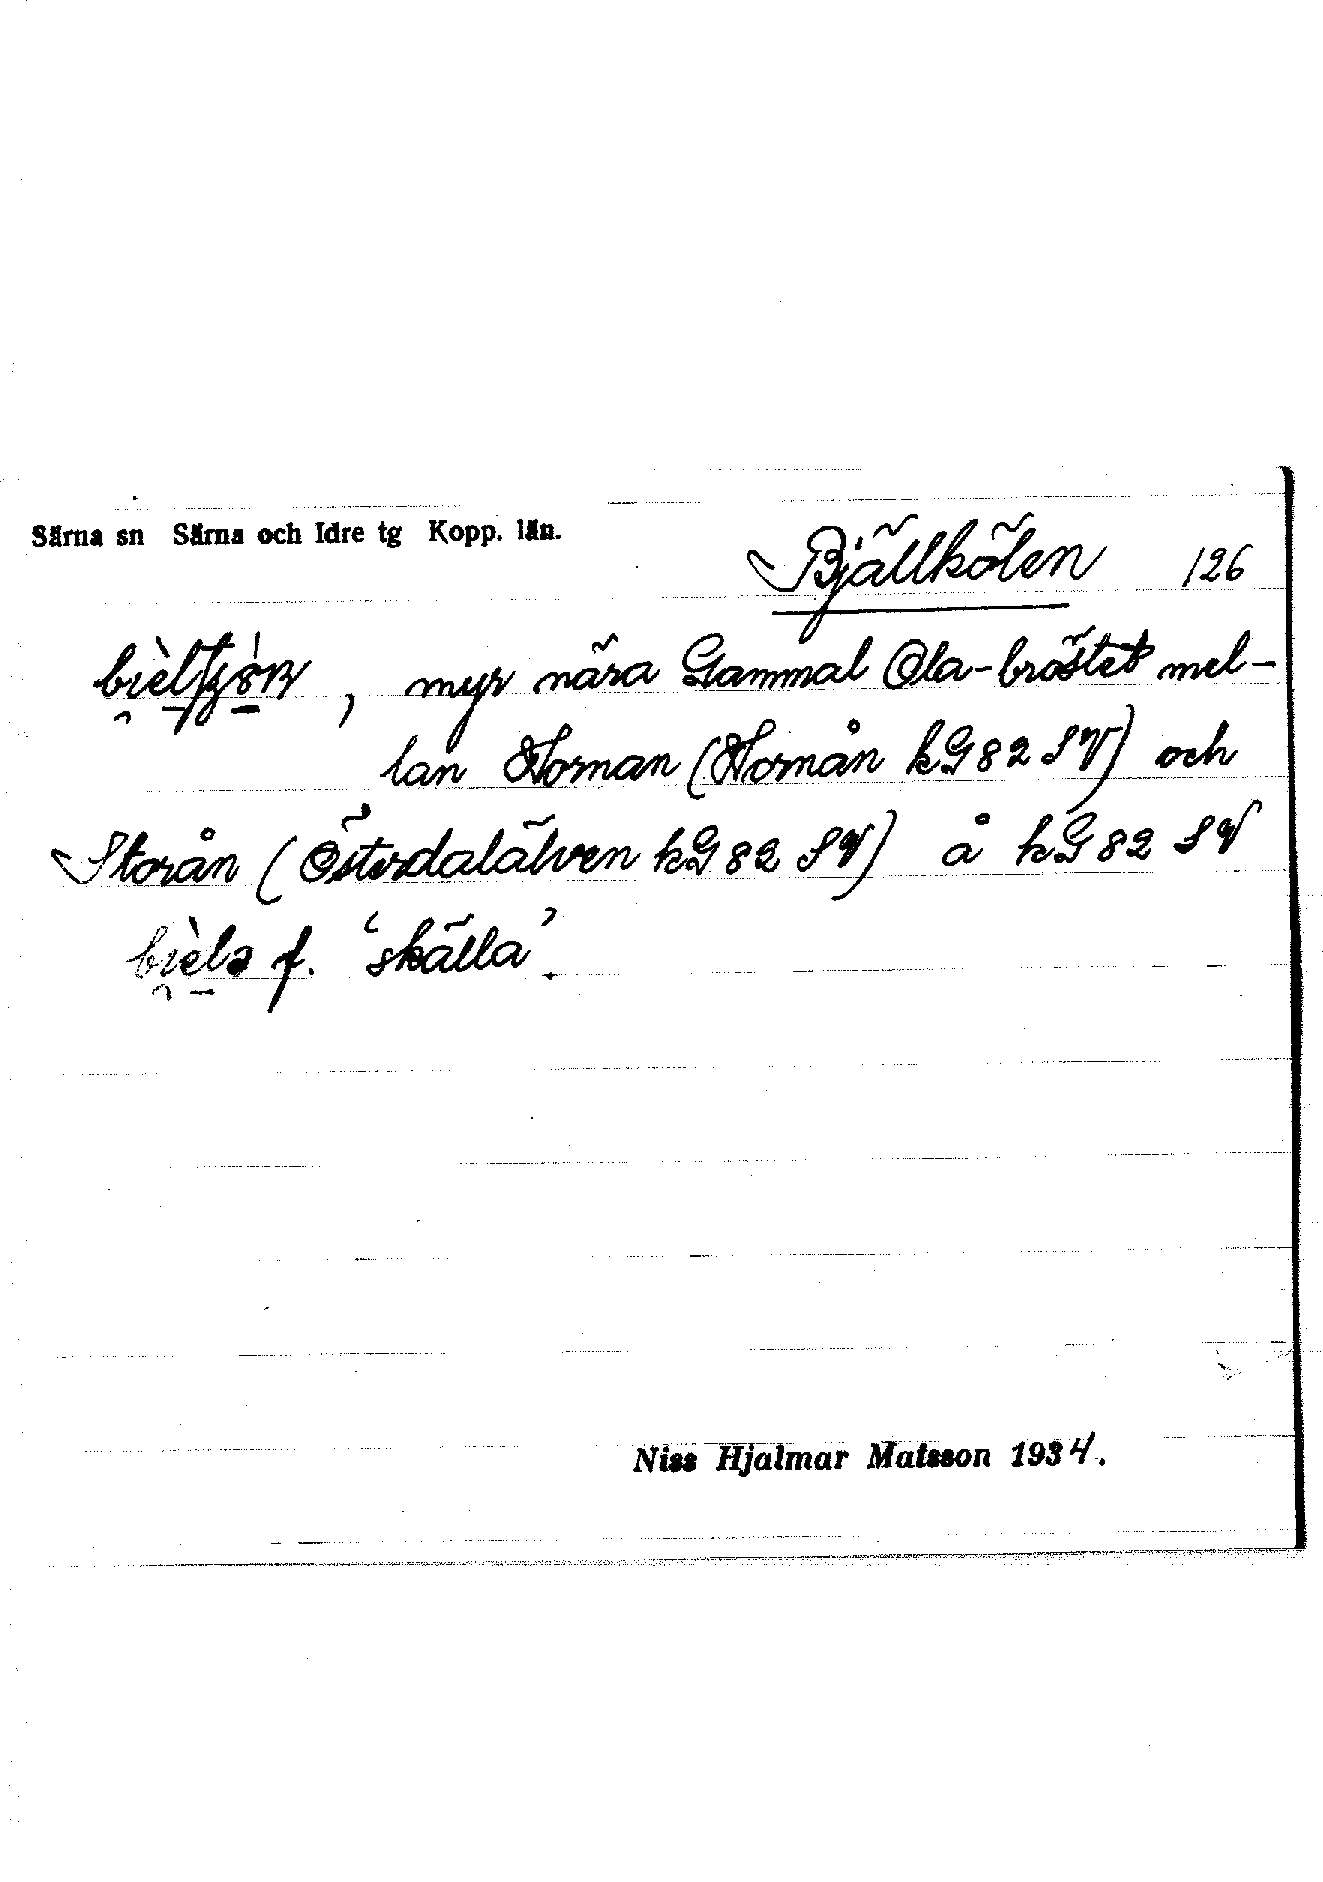 Särna sn Särna och Idre tg Kopp. län.
Bjällkölen 126
myr nära Gammal Ola-bröstet mel-
lan Hornan (Hornån kG 82 SV) och
Storån (Österdalälven kG 82 SV) å kG 82 SV
f. 'skälla'.
Niss Hjalmar Matsson 1934.